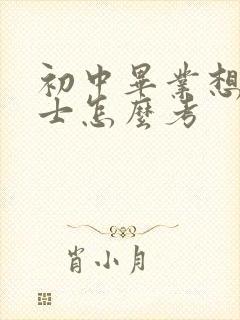 初中畢業想
士怎麼考
肖小月